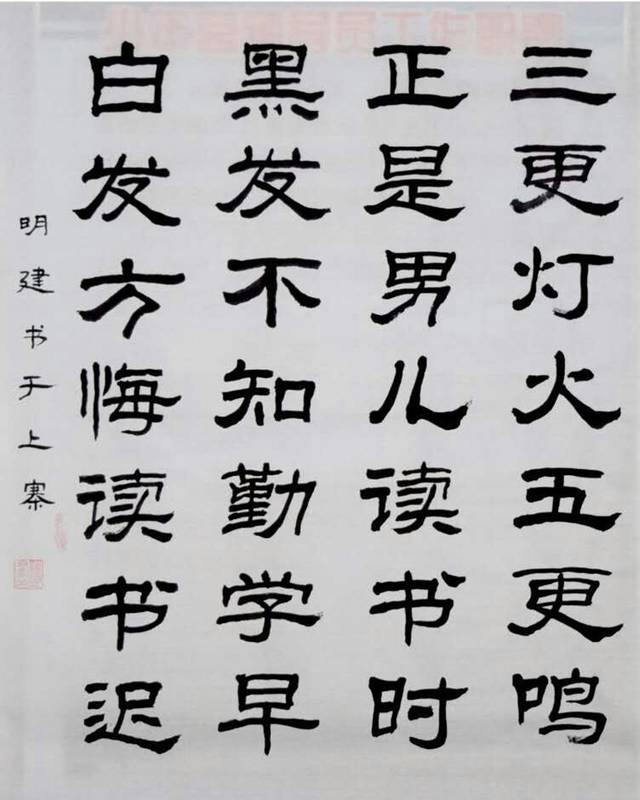 三更灯火五更鸣
正是男儿读书时
黑发不知勤学早
白发方悔读书迟
明建书于上寨